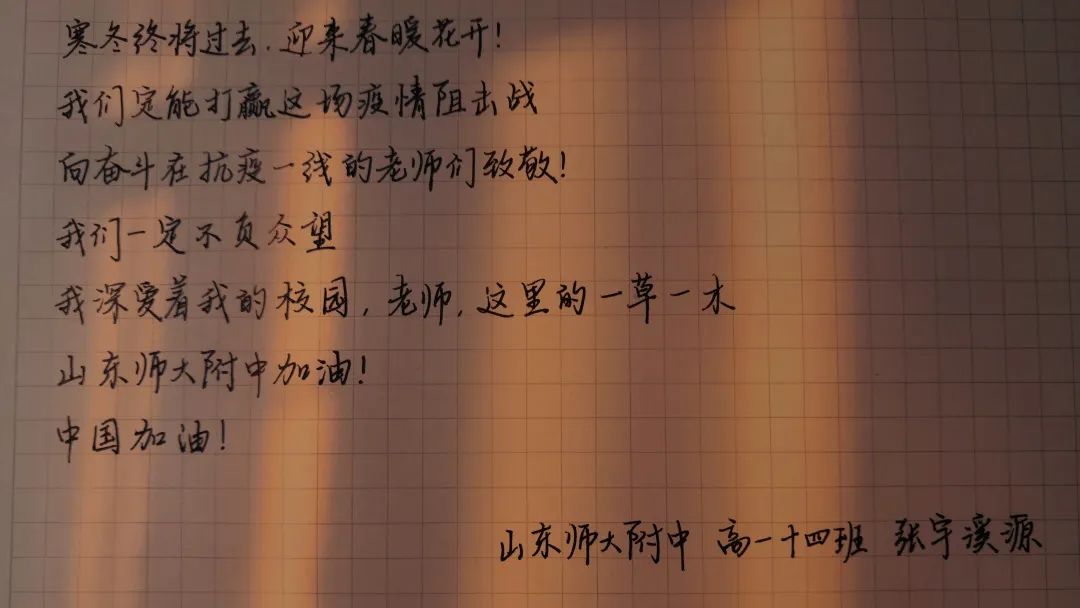 寒冬终将过去.迎来春暖花开!
我们定能打赢这场疫情阻击战
向奋斗在抗疫一线的老师们致敬!
我们一定不负众望
我深爱着我的校园,老师,这里的一草一木
山东师大附中加油!
中国加油!
山东师大附中 高一十四班 张宇溪源